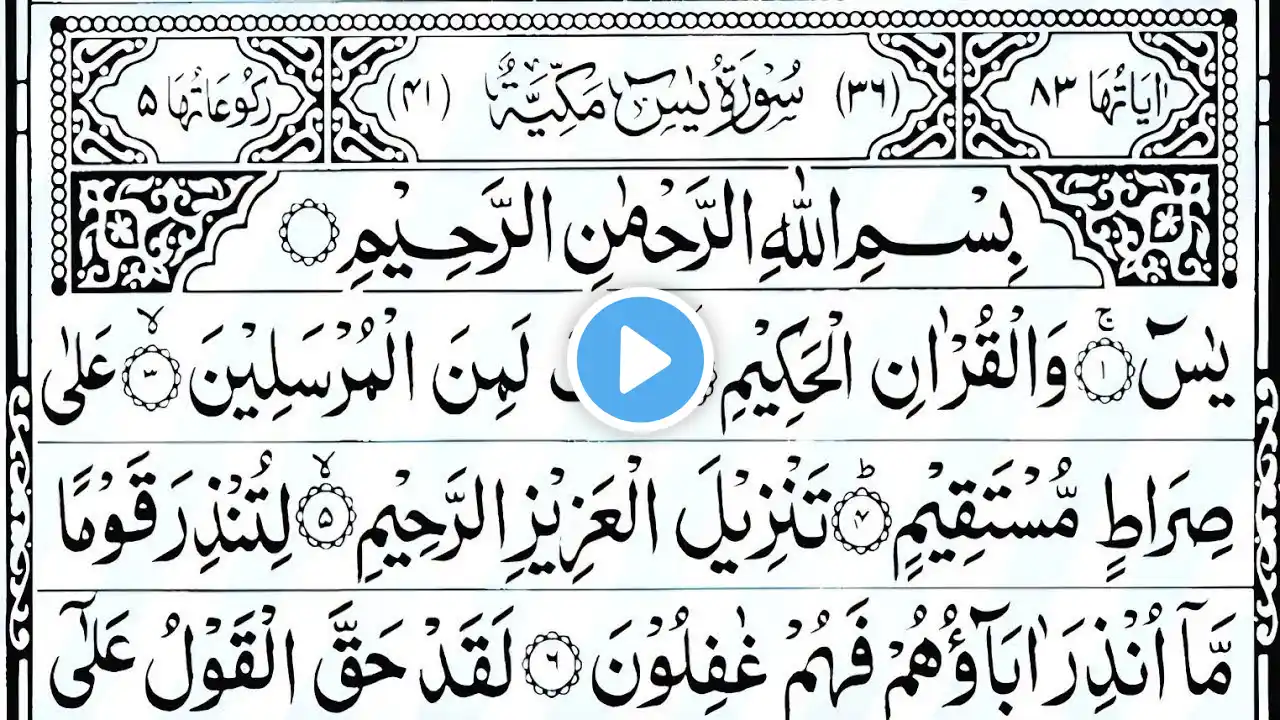 اٰيَاتُهَا ٨٣ (٣٦) سُوْرَةُ يٰسٓ مَكِّيَّةٌ (٤١) رُكُوْعَاتُهَا ۵
بِسْمِ اللّٰهِ الرَّحْمٰنِ الرَّحِيْمِ
يٰسٓ ۚ﴿۱﴾ وَالْقُرْاٰنِ الْحَكِيْمِ لَمِنَ الْمُرْسَلِيْنَ ۙ﴿۳﴾ عَلٰى
صِرَاطٍ مُّسْتَقِيْمٍ ؕ﴿۴﴾ تَنْزِيْلَ الْعَزِيْزِ الرَّحِيْمِ ۙ﴿۵﴾ لِتُنْذِرَ قَوْمًا
مَّاۤ اُنْذِرَ اٰبَآؤُهُمْ فَهُمْ غٰفِلُوْنَ ﴿۶﴾ لَقَدْ حَقَّ الْقَوْلُ عَلٰٓى